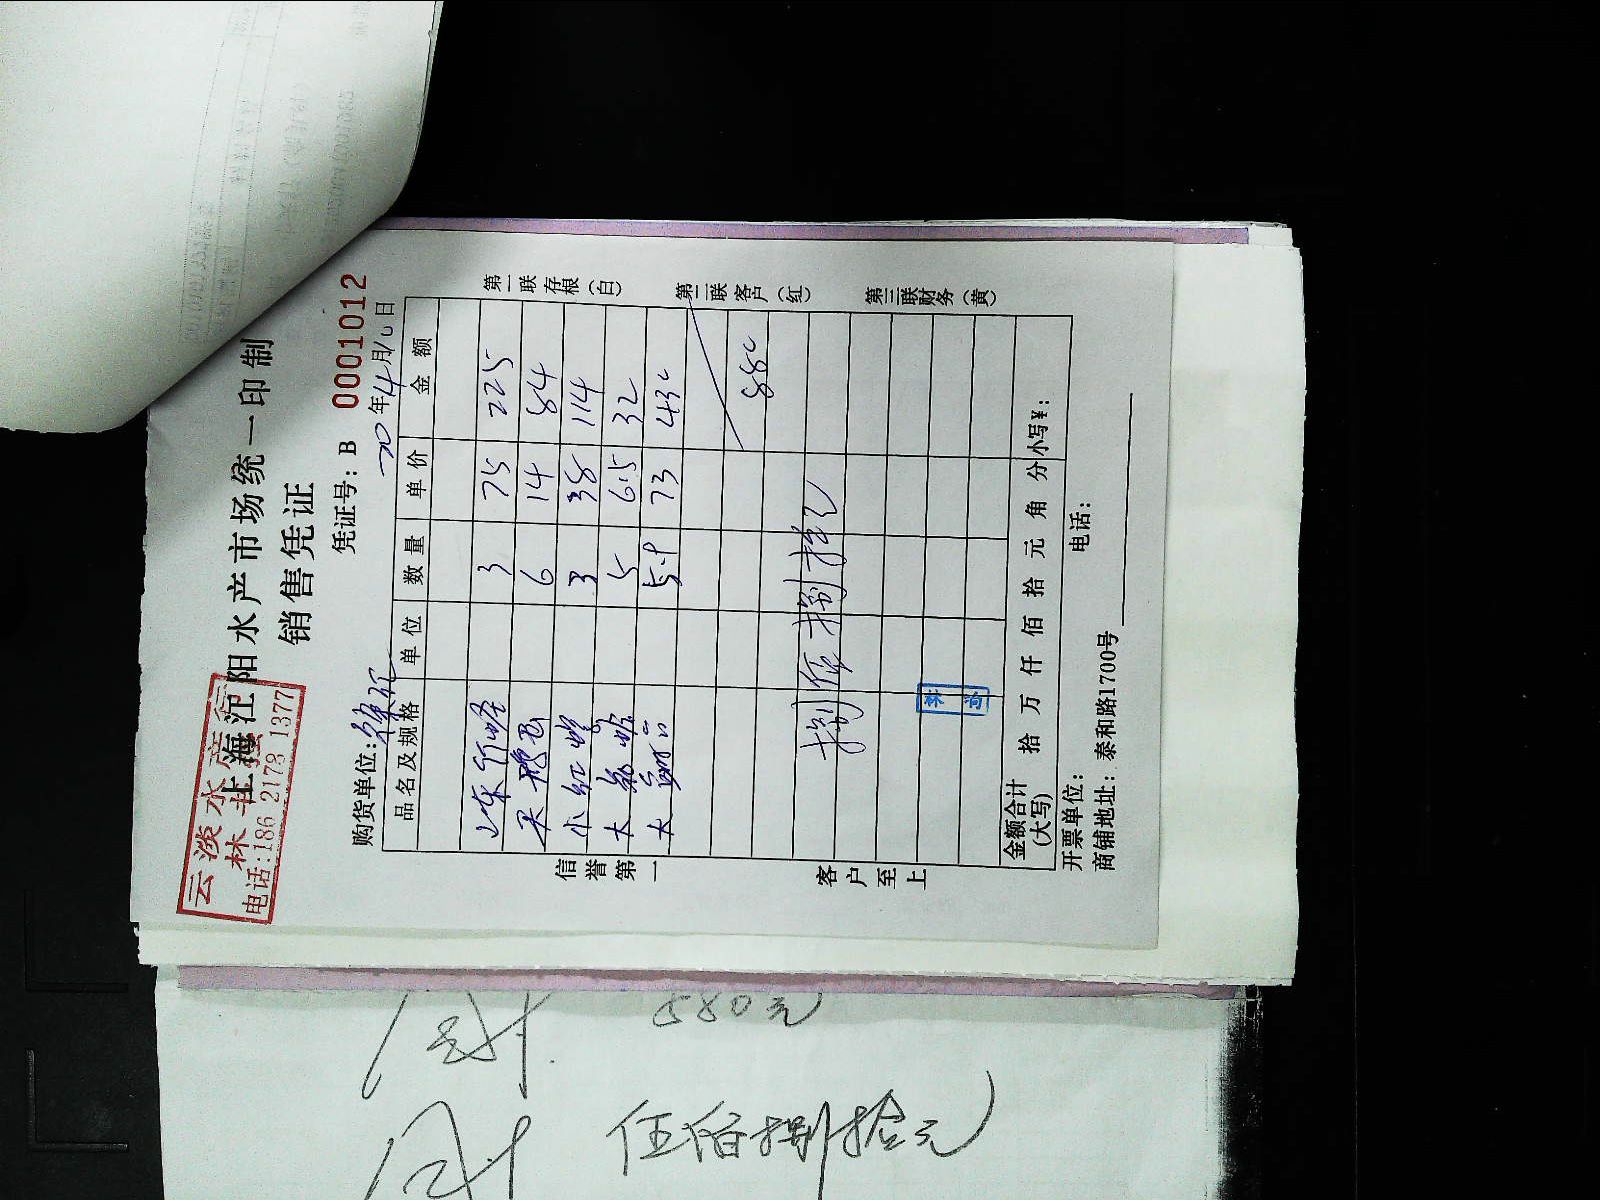 云淡水产
林 士 强
电话:186 2173 1377
上海江阳水产市场统一印制
销售凭证
凭证号：B 0001012
购货单位:
20年4月10日
品名及规格 单位 数量 单价 金额
3 75 225
6 14 84
小红 3 38 114
大 5 6.5 32
大 5.9 73 430
880
捌佰捌拾元
金额合计(大写) 拾 万 仟 佰 拾 元 角 分 小写¥：
开票单位： 电话：
商铺地址：泰和路1700号
信誉第一
客户至上
第一联存根（白）
第二联客户（红）
第三联财务（黄）
580元
伍佰捌拾元